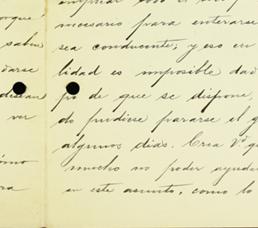 orqué
saber
darse
desean
ver
ómo
ra
necesario para enterarse
sea conducente; y eso en
lidad es imposible dad
po de que se dispone,
do pudiese pararse el
algunos dias. Crea Vd. q
mucho no poder ayuda
en este asunto, como lo